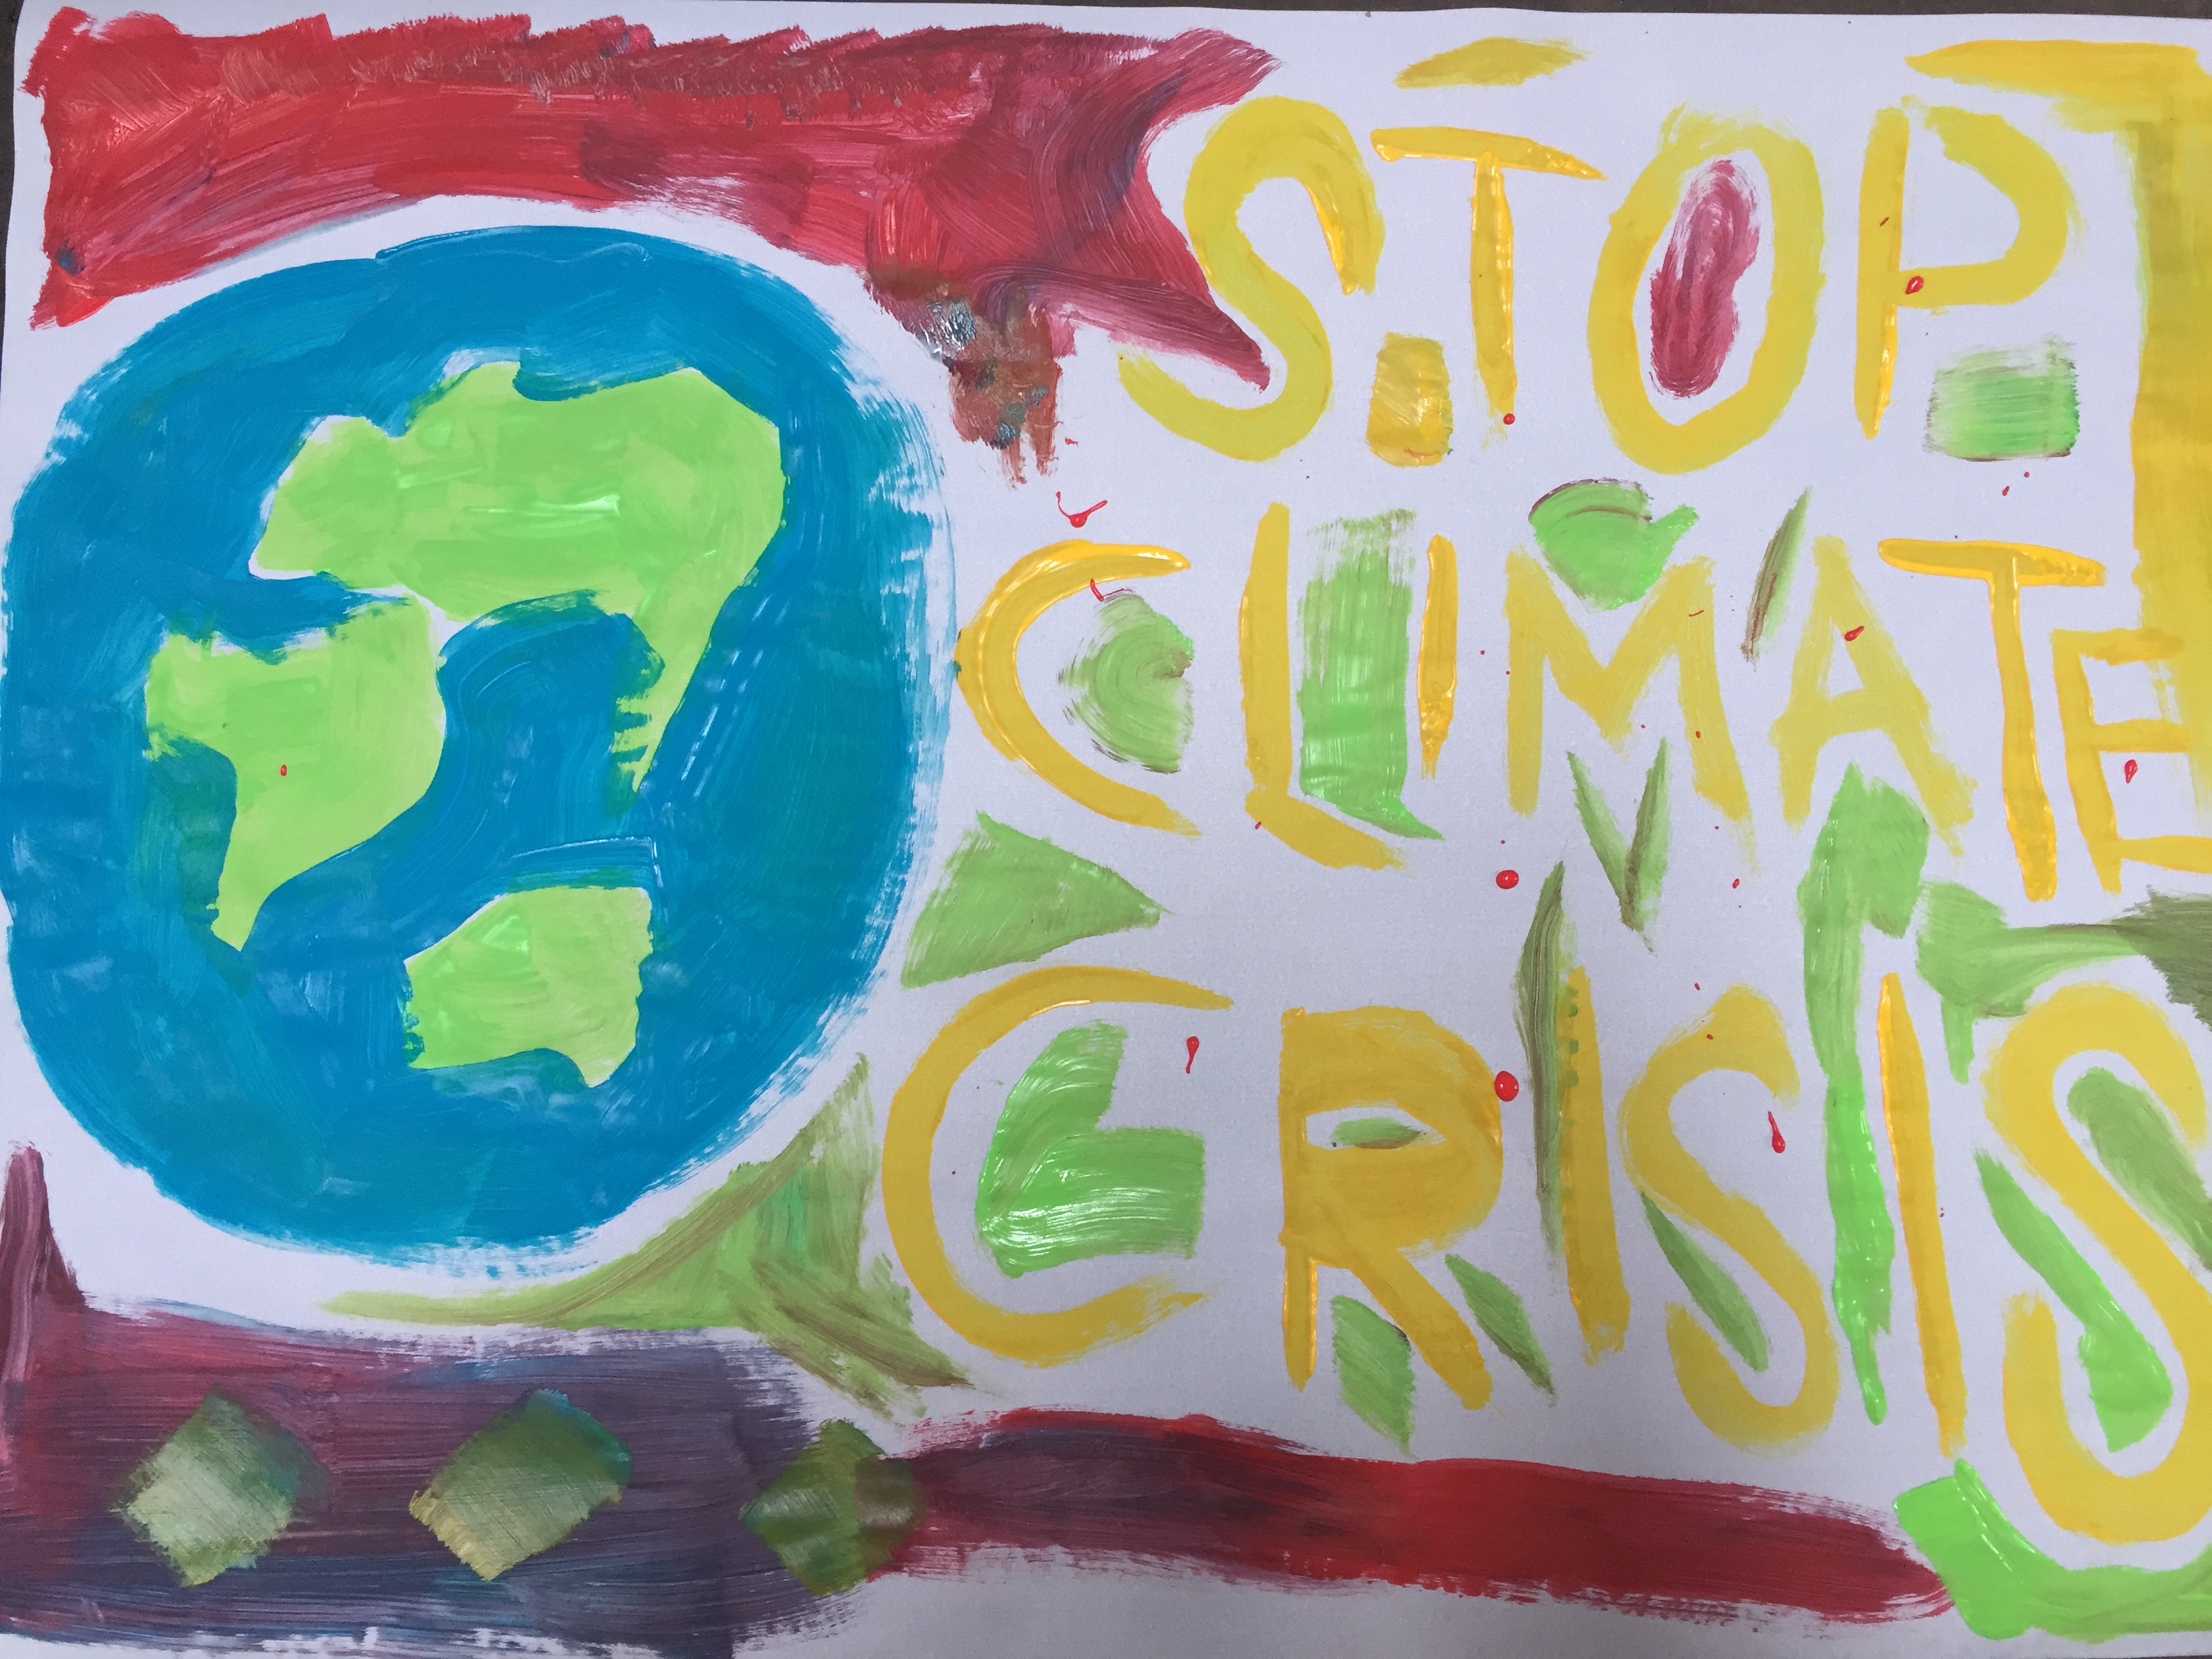 STOP
CLIMATE
CRISIS